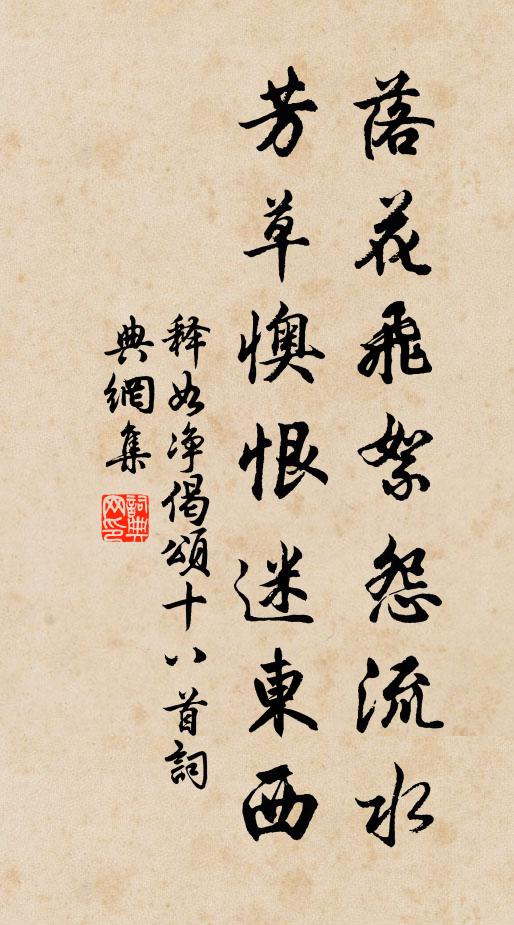 落花飛絮怨流水
芳草懊恨迷東西
释如净偈頌十八首詞
典網集
詞典网印